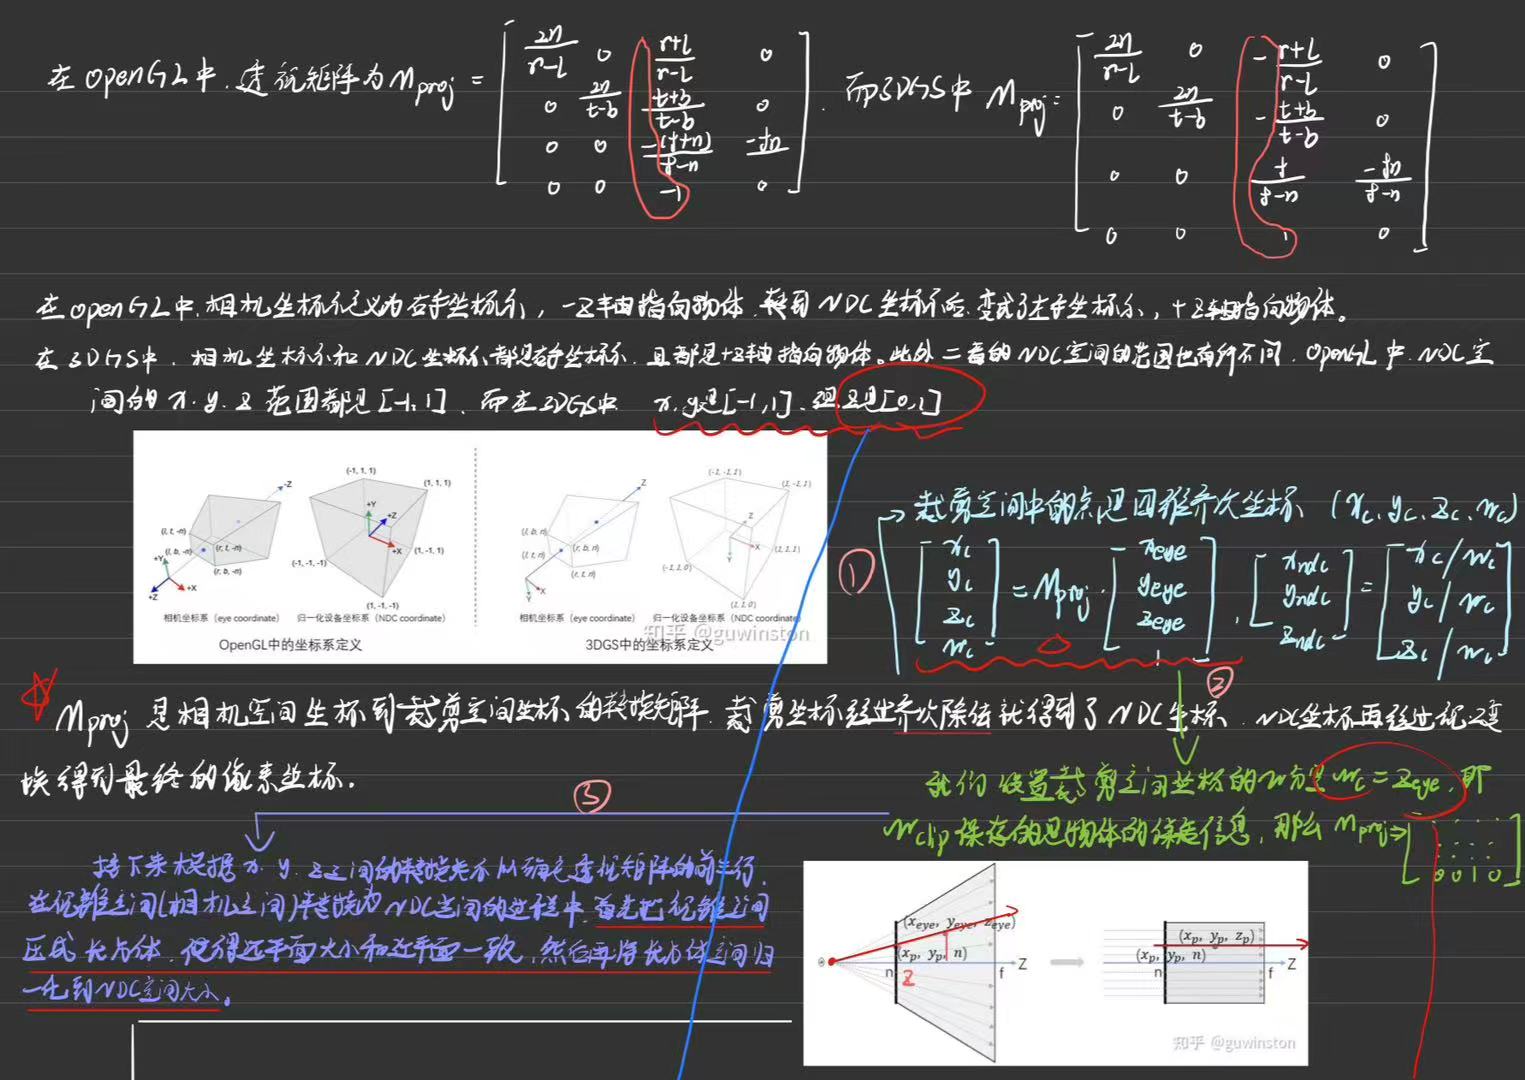 在openGL中,透视矩阵为Mproj = [ 2n/r-l 0 r+l/r-l 0
0 2n/t-b t+b/t-b 0
0 0 -(f+n)/f-n -fn
0 0 -1 0 ]
而3DGS中 Mproj= [ 2n/r-l 0 -r+l/r-l 0
0 2n/t-b -t+b/t-b 0
0 0 f/f-n -fn/f-n
0 0 1 0 ]
在openGL中,相机坐标系定义为右手坐标系,-Z轴指向物体,转到NDC坐标系后,变成了左手坐标系,+Z轴指向物体。
在3DGS中,相机坐标系和NDC坐标系都是右手坐标系,且都是+Z轴指向物体。此外二者的NDC空间的范围也有所不同,OpenGL中,NDC空
间的x.y.z范围都是[-1,1],而在3DGS中 x,y是[-1,1],但z是[0,1]
-Z
(l, t, -n)
(l, b, -n)
(r, t, -n)
(r, b, -n)
+Y
+X
+Z
(-1, 1, 1)
(1, 1, 1)
+Y
+Z
+X
(1, -1, 1)
(-1, -1, -1)
(1, -1, -1)
相机坐标系(eye coordinate)
归一化设备坐标系(NDC coordinate)
OpenGL中的坐标系定义
Z
(l, b, n)
(l, t, n)
(r, b, n)
(r, t, n)
X
Y
(-1, -1, 1)
(1, -1, 1)
Z
X
Y
(1, 1, 1)
(-1, 1, 0)
(1, 1, 0)
相机坐标系(eye coordinate)
归一化设备坐标系(NDC coordinate)
3DGS中的坐标系定义
知乎 @guwinston
→裁剪空间中的点是四维齐次坐标 (xc, yc, zc, wc)
①
[ xc yc zc wc ] = Mproj · [ xeye yeye zeye 1 ], [ xndc yndc zndc ] = [ xc/wc yc/wc zc/wc ]
②
Mproj 是相机空间坐标到裁剪空间坐标的转换矩阵,裁剪坐标经过齐次除法就得到了NDC坐标,NDC坐标再经过视口变
换得到最终的像素坐标.
我们设置裁剪空间坐标的w分量 wc = zeye,即
wclip保存的是物体的深度信息,那么 Mproj→[ . . . .
. . . .
. . . .
0 0 1 0 ]
③
接下来根据x.y.z之间的转换关系以确定透视矩阵的前三行,
在视锥空间(相机空间)转换为NDC空间的过程中,首先把视锥空间
压成长方体,使得远平面大小和近平面一致,然后再将长方体空间归
一化到NDC空间大小。
(xeye, yeye, zeye)
(xp, yp, n)
n
Z
f
Z
(xp, yp, zp)
(xp, yp, n)
n
f
Z
知乎 @guwinston